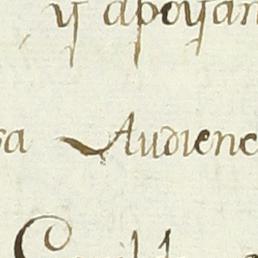 y apoyan
sa Audienc